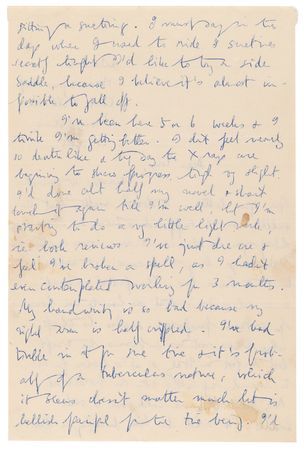 sitting on something. I must say in the
days when I used to ride I sometimes
secretly thought I'd like to try a side
saddle, because I believe it's almost im-
possible to fall off.
I've been here 5 or 6 weeks & I
think I'm getting better. I don't feel nearly
so deathlike & by day the X rays are
beginning to show progress, though v. slight.
I'd done abt half my novel & shan't
touch it again till I'm well, but I'm
starting to do a very little light work,
ie. book reviews. I've just done one &
feel I've broken a spell, as I hadn't
even contemplated working for 3 months.
My handwriting is so bad because my
right arm is half crippled. I've had
trouble in it for some time & it's prob-
ably of a tuberculous nature, which
it seems doesn't matter much but is
hellish painful for the time being. I'd